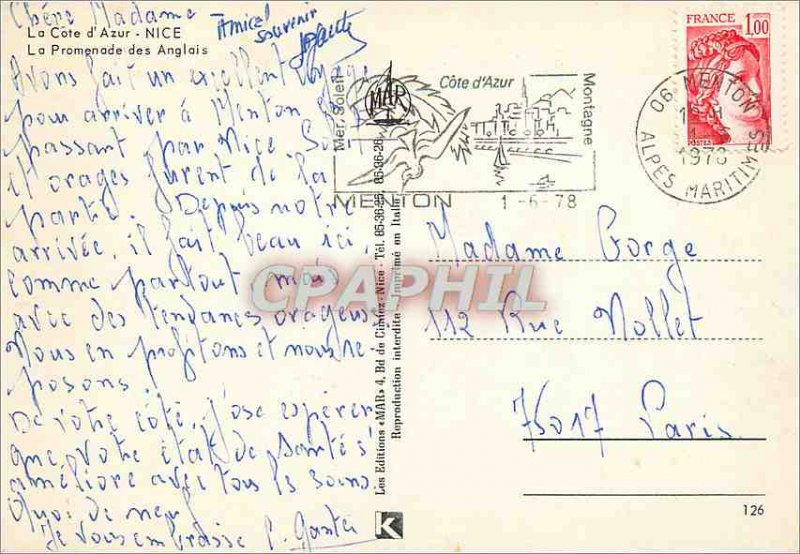 Chère Madame
La Côte d'Azur - NICE
La Promenade des Anglais
Amical
souvenir
Avons fait un excellent voyage
pour arriver à Menton
passant par Nice
et orages furent de la
partie. Depuis notre
arrivée, il fait beau ici,
comme partout mais
avec des tendances orageuses
Nous en profitons et nous re-
posons.
De votre côté, j'ose espérer
que votre état de santé s'
améliore avec tous les soins.
Quoi de neuf
Je vous embrasse
Mer Soleil
MAR
Côte d'Azur
Montagne
MENTON
1-6-78
FRANCE 1,00
POSTES
06 MENTON
1978
ALPES MARITIMES
Les Editions «MAR» 4, Bd de Cimiez - Nice - Tél. 85-36-28
Reproduction interdite - Imprimé en Italie
K
CPAPHIL
Madame Gorge
112 Rue Nollet
75017 Paris
126